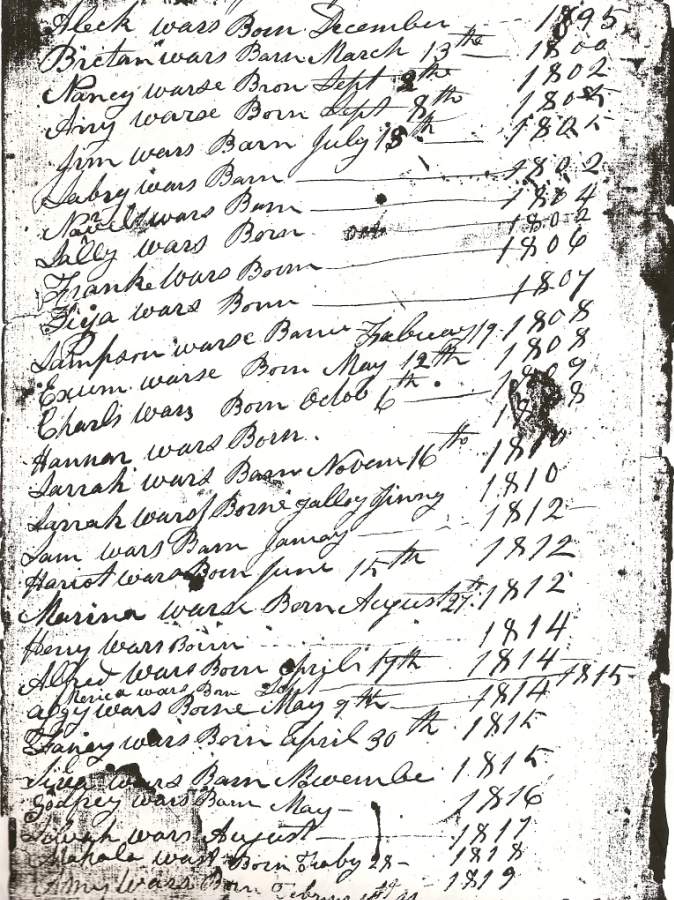 Aleck wars Born December 1895
Bretan wars Barn March 13th 1800
Nancy warse Bron Sept 2th 1802
Any warse Born Sept 8th 1805
Jim wars Barn July 18th 1805
Labry wars Barn 1802
wars Barn 1804
Sally wars Born 1802
Franke Wars Bourn 1806
wars Bonn 1807
Sampson warse Barne Febuary 19 1808
Exum warse Born May 12th 1808
Charls wars Born Octob 6th 1809
Hannar wars Born 8
Sarrah wars Barn Novem 16th 1810
Sarrah wars Borne yalloy Jinny 1810
Sam wars Barn 1812
Hariot wars Born June 15th 1812
Marina warse Born August 27th 1812
Henry wars Bourn 1814
Alfred wars Born april 17th 1814
wars Born 1815
aggy wars Borne May 9th 1814
Fanny wars Born april 30th 1815
wars Barn Novembe 1815
Godfrey wars Barn May 1816
wars August 1817
Mahala wars Born Feaby 28 1818
Amy wars Born 1819